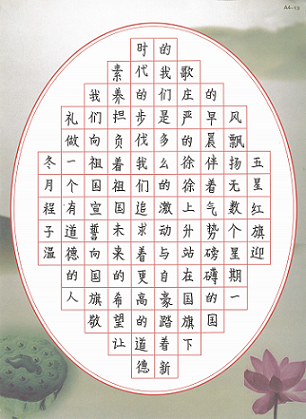 五星红旗迎
风飘扬无数个星期一
的早晨伴着气势磅礴的国
歌庄严的徐徐上升站在国旗下
的我们是多么的激动与自豪踏着新
时代的步伐我们追求着更高的道德
素养担负着祖国未来的希望让
我们向祖国宣誓向国旗敬
礼做一个有道德的人
冬月程子温